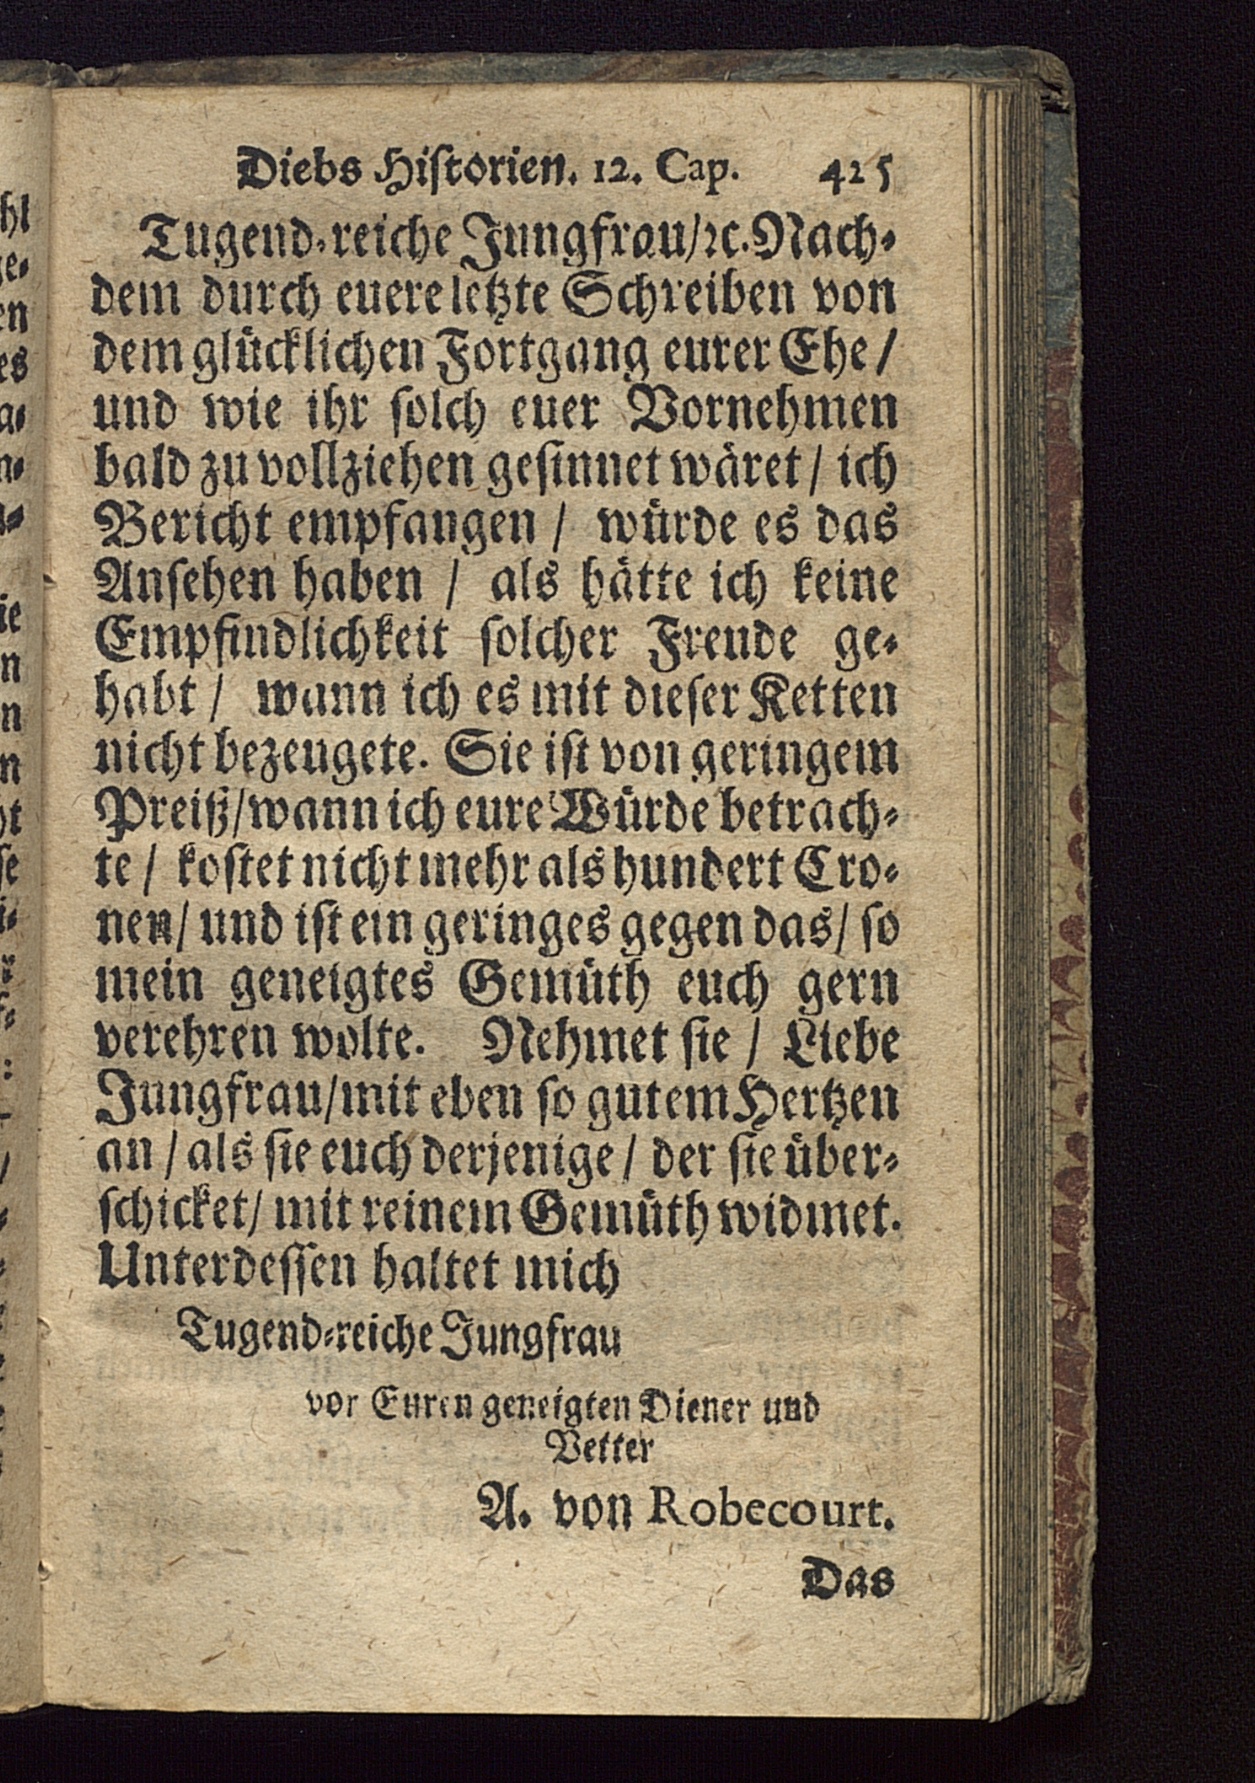 Diebs Hiſtorien. 12. Cap. 425
Tugend-reiche Jungfrau/ꝛc. Nach-
dem durch euere letzte Schreiben von
dem glücklichen Fortgang eurer Ehe /
und wie ihr ſolch euer Vornehmen
bald zu vollziehen geſinnet wäret / ich
Bericht empfangen / würde es das
Anſehen haben / als hätte ich keine
Empfindlichkeit ſolcher Freude ge-
habt / wann ich es mit dieſer Ketten
nicht bezeugete. Sie iſt von geringem
Preiß/wann ich eure Würde betrach-
te / koſtet nicht mehr als hundert Cro-
nen/ und iſt ein geringes gegen das/ ſo
mein geneigtes Gemüth euch gern
verehren wolte. Nehmet ſie / Liebe
Jungfrau/mit eben ſo gutem Hertzen
an / als ſie euch derjenige / der ſie über-
ſchicket/ mit reinem Gemüth widmet.
Unterdeſſen haltet mich
Tugend-reiche Jungfrau
vor Euren geneigten Diener und
Vetter
A. von Robecourt.
Das